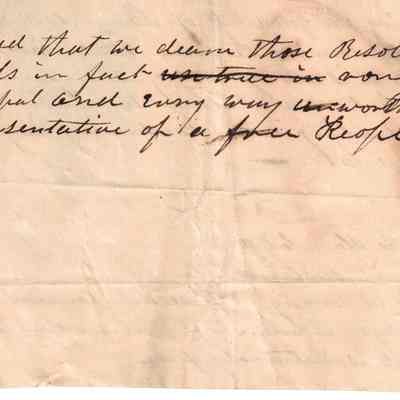 ed that we deem those Resol
ls in fact untrue in con
pal and every way unworth
sentative of a free People